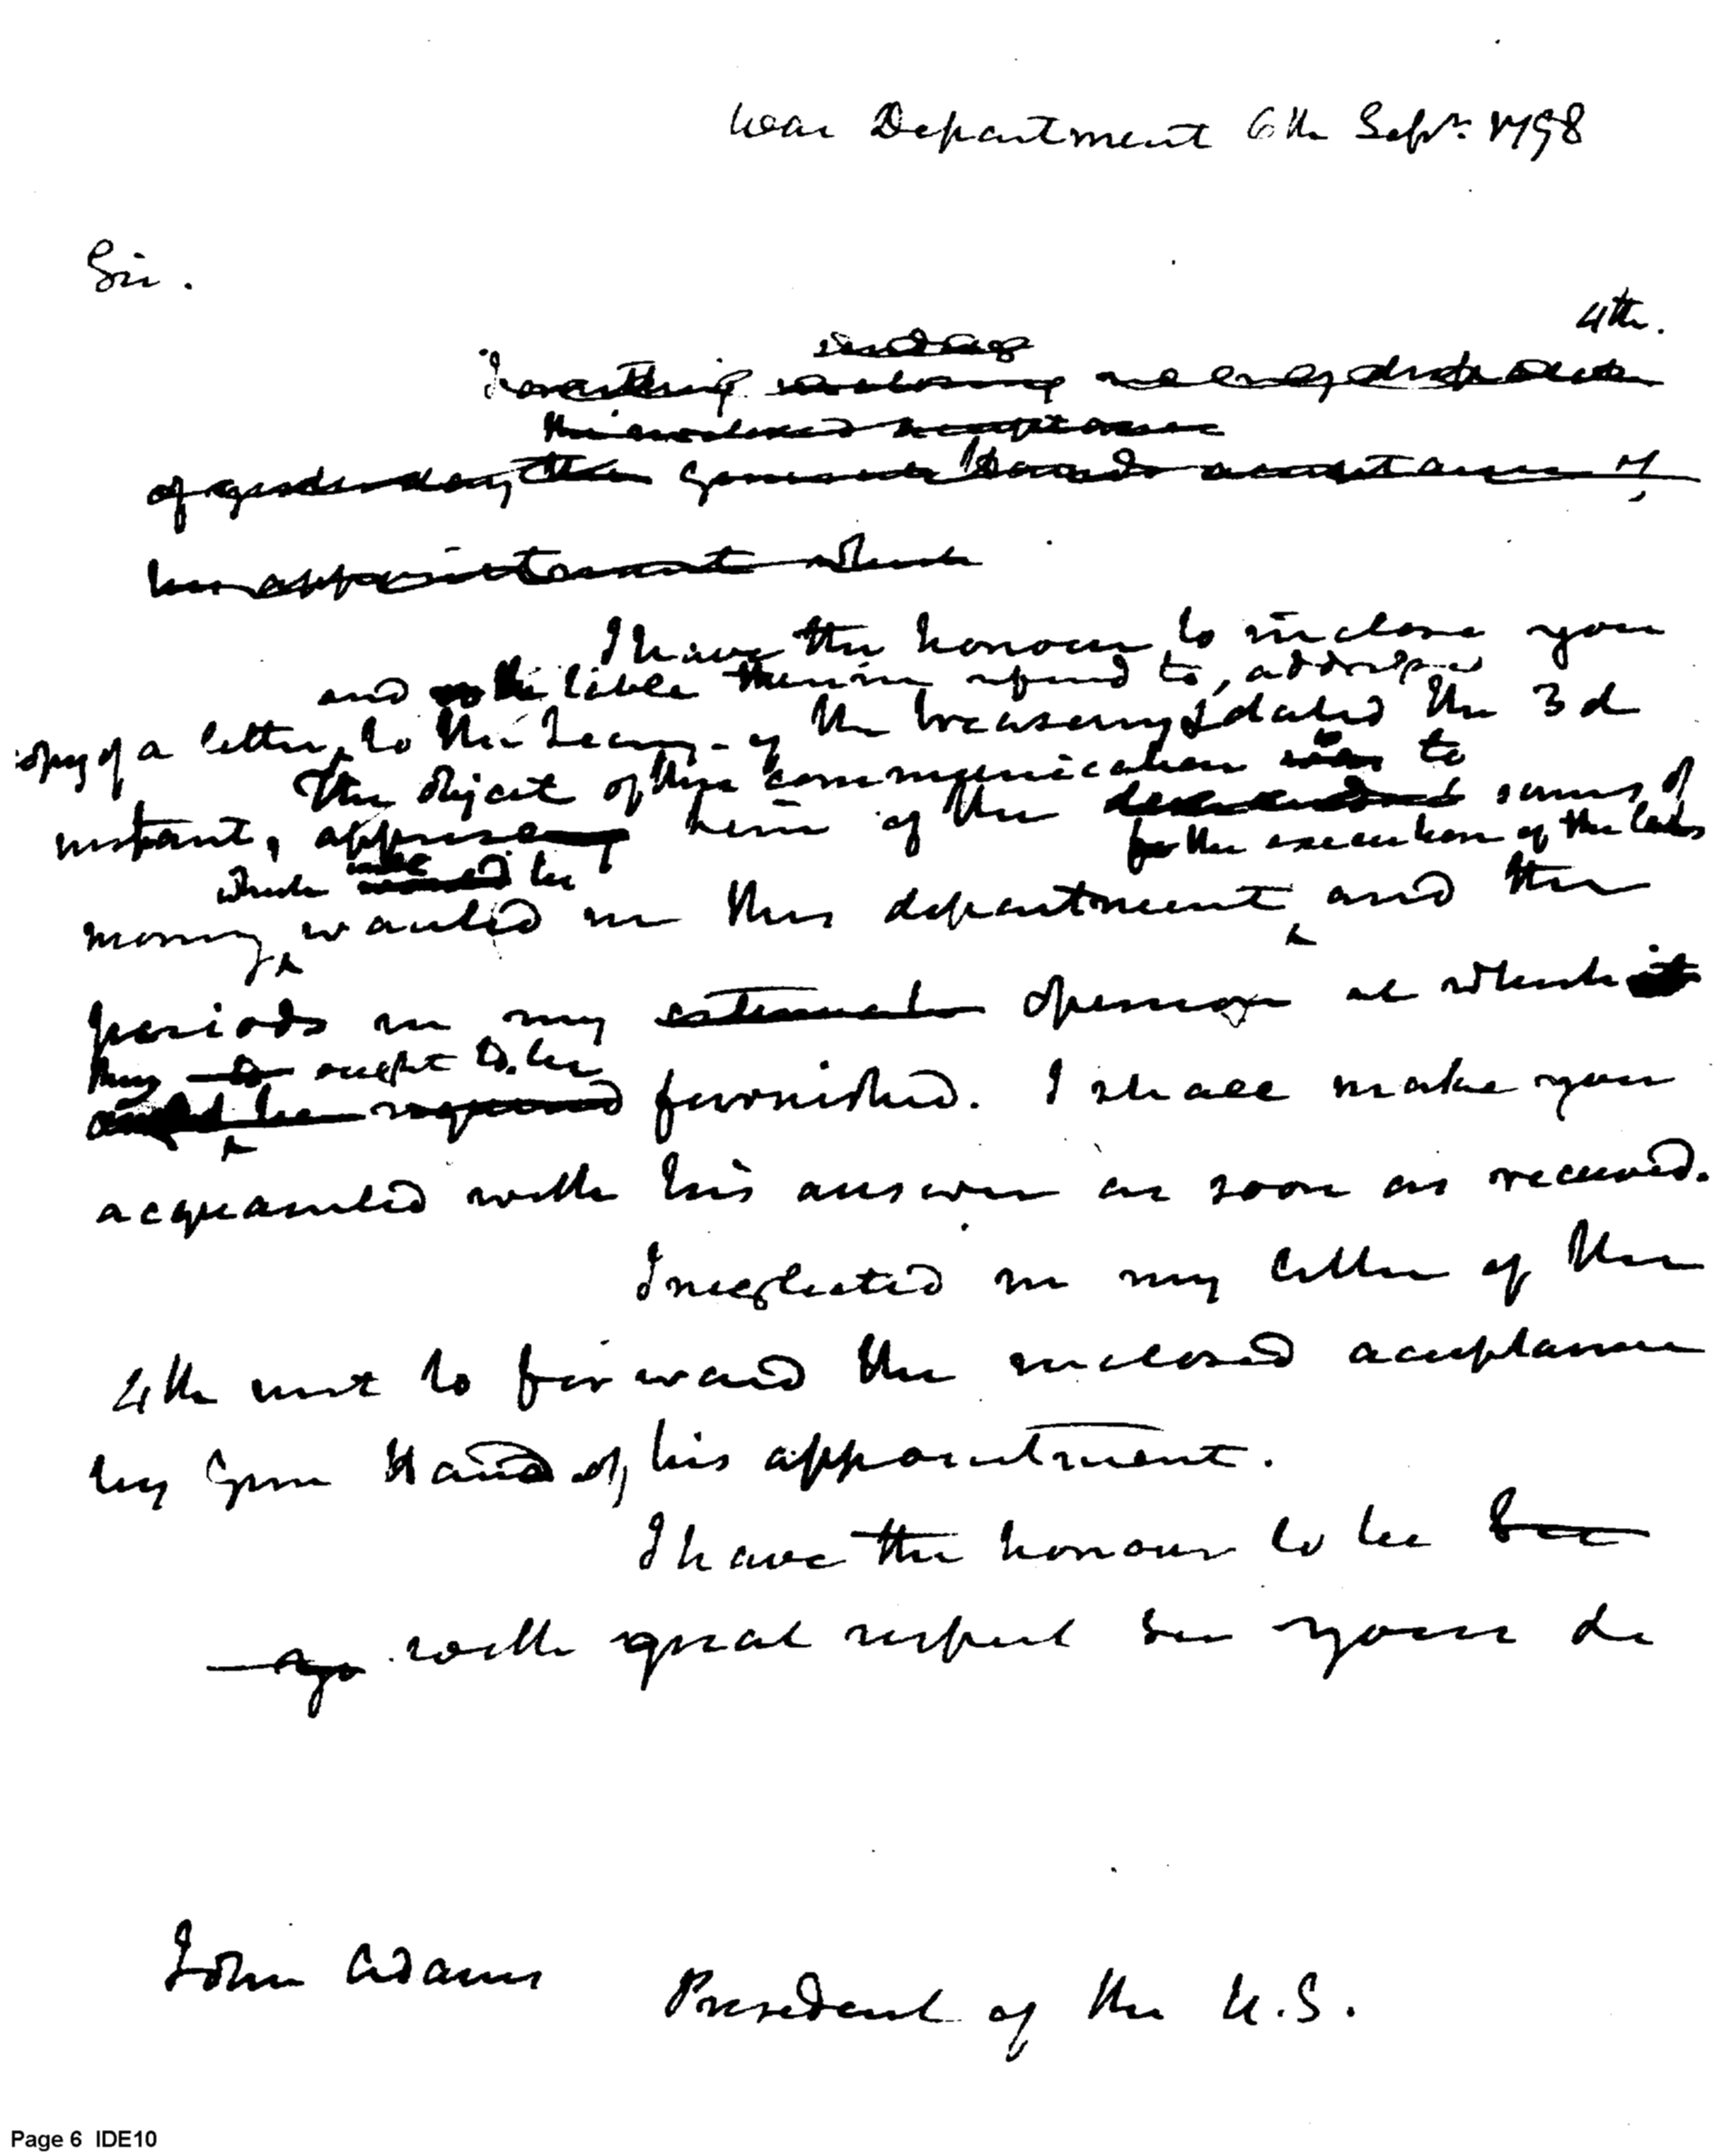 War Department 6th Sepr. 1798
Sir.
4th.
the inclosed acceptance
of yesterday the General Hand's acceptance of
his appointment which
I have the honour to inclose you
and the table therein referred to, addressed
copy of a letter, to the Secy. of the treasury dated the 3d
The object of this communication was to
instant, apprise him of the sums of
for the execution of the laws
which be
money wanted in this department and the
periods in my estimate opinion at which it
they ought to be
be required furnished. I shall make you
acquainted with his answer as soon as received.
I neglected in my letter of the
4th inst to forward the inclosed acceptance
by Genl Hand of his appointment.
I have the honour to be
with great respect Sir your
John Adams
President of the U.S.
Page 6 IDE10